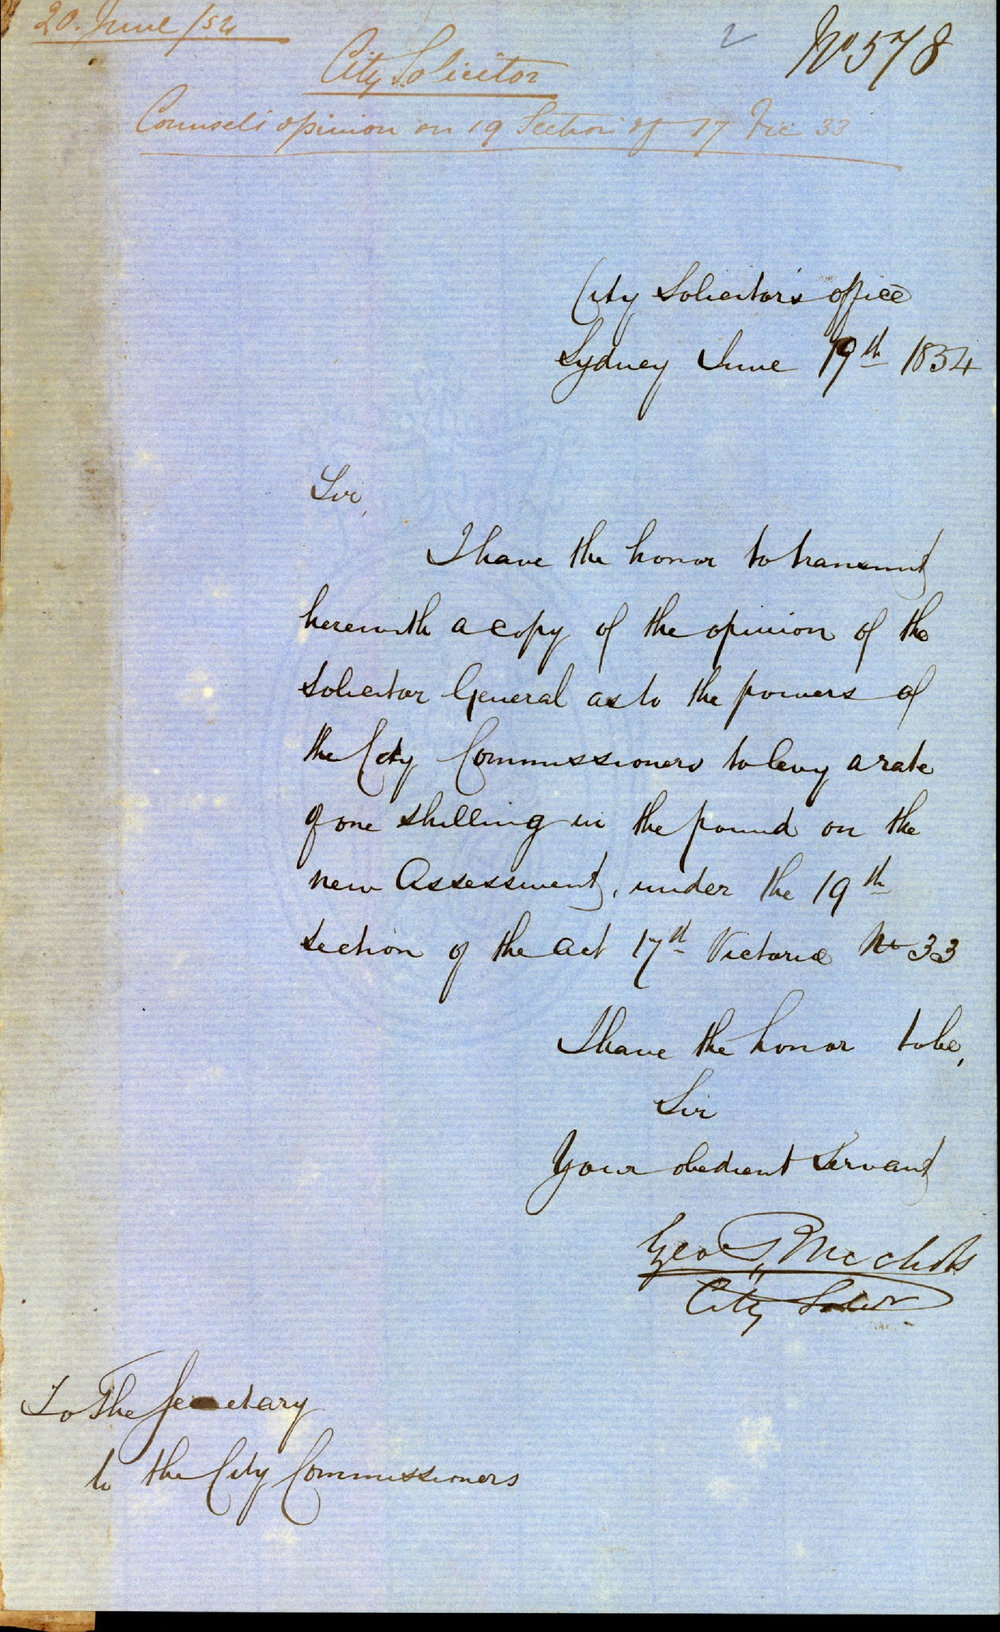 20. June /54
2
No 578
City Solicitor
Counsel's opinion on 19 Section of 17 Vic 33
City Solicitor's office
Sydney June 19th 1854
Sir,
I have the honor to transmit
herewith a copy of the opinion of the
Solicitor General as to the powers of
the City Commissioners to levy a rate
of one shilling in the pound on the
new Assessment, under the 19th
section of the act 17th Victoria No 33
I have the honor to be,
Sir
Your obedient Servant
Geo R Nichols
City Solr
To The Secretary
to the City Commissioners